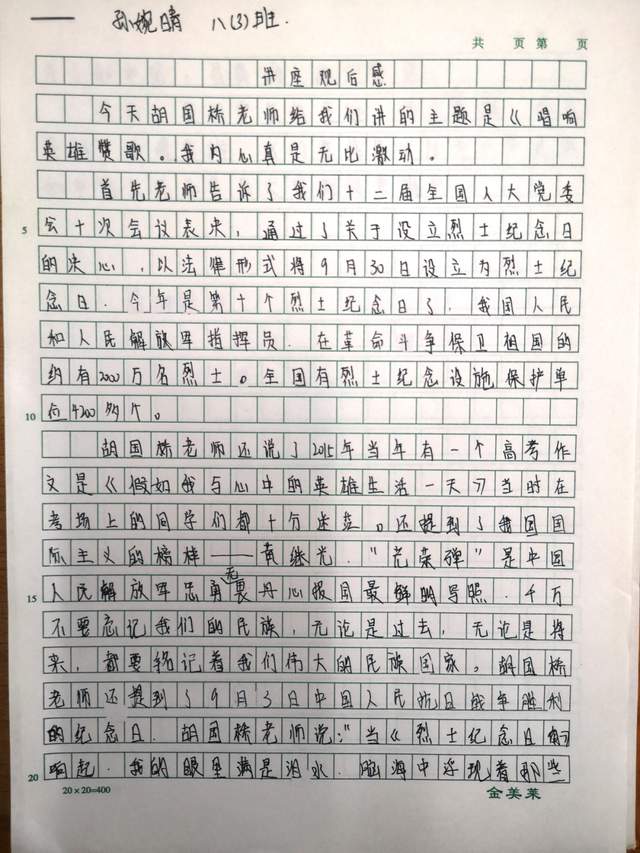 孙婉晴 八(3)班.
共 页 第 页
讲座观后感
今天胡国桥老师给我们讲的主题是《唱响
英雄赞歌。我内心真是无比激动。
首先老师告诉了我们十二届全国人大党委
5 会十次会议表决,通过了关于设立烈士纪念日
的决心,以法律形式将9月30日设立为烈士纪
念日.今年是第十个烈士纪念日了,我国人民
和人民解放军指挥员.在革命斗争保卫祖国的
约有2000万名烈士。全国有烈士纪念设施保护单
10 位4200多个。
胡国桥老师还说了2015年当年有一个高考作
文是《假如我与心中的英雄生活一天》当时在
考场上的同学们都十分迷茫。还提到了我国国
际主义的榜样——黄继光."光荣弹"是中国
15 人民解放军忠勇无畏丹心报国最鲜明写照.千万
不要忘记我们的民族,无论是过去,无论是将
来,都要铭记着我们伟大的民族国家。胡国桥
老师还提到了9月3日中国人民抗日战争胜利
的纪念日.胡国桥老师说:"当《烈士纪念日
20 响起.我的眼里满是泪水.脑海中浮现着那些
20×20=400
金美莱